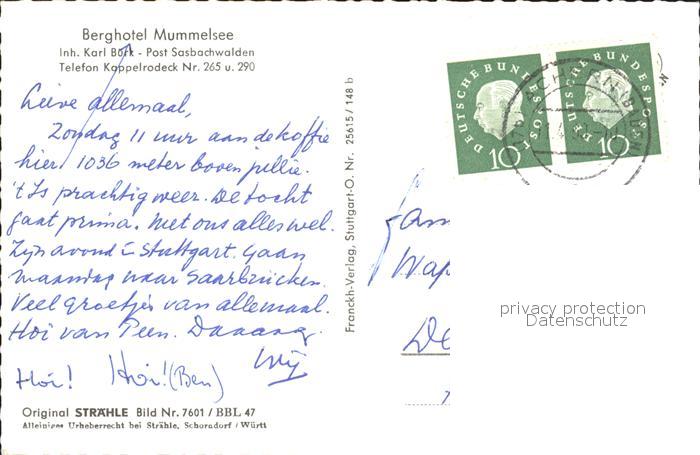 Berghotel Mummelsee
Inh. Karl Börk - Post Sasbachwalden
Telefon Kappelrodeck Nr. 265 u. 290
Lieve allemaal,
Zondag 11 uur aan de koffie
hier 1036 meter boven jullie.
't Is prachtig weer. De tocht
gaat prima. Met ons alles wel.
Zijn avond in Stuttgart. Gaan
maandag naar Saarbrücken.
Veel groetjes van allemaal.
Hoi van Peen. Daaaag.
Wij
Hoi! Hoi! (Ben)
Original STRÄHLE Bild Nr. 7601 / BBL 47
Alleiniges Urheberrecht bei Strähle, Schorndorf / Württ
Franckh-Verlag, Stuttgart-O. Nr. 25615 / 148 b
DEUTSCHE BUNDESPOST
10
DEUTSCHE BUNDESPOST
10
Fam
Wap
De
privacy protection
Datenschutz